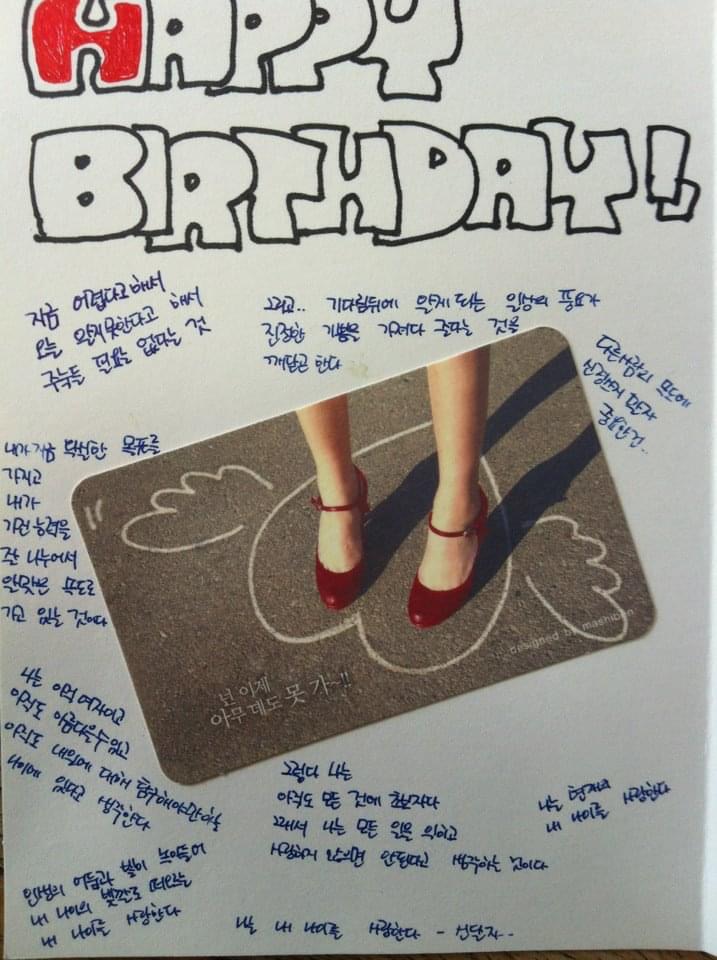 HAPPY
BIRTHDAY!
지금 어렵다고 해서
오늘 알지 못한다고 해서
주눅들 필요는 없다는 것
그리고.. 기다림뒤에 알게 되는 일상의 풍요가
진정한 기쁨을 가져다 준다는 것을
깨닫곤 한다
다른사람의 속도에
신경쓰지 말자
중요한건..
내가 지금 확실한 목표를
가지고
내가
가진 능력을
잘 나누어서
알맞은 속도로
가고 있는 것이다
나는 아직 여자이고
아직도 아름다울수 있고
아직도 내일에 대해 탐구해야만하는
나이에 있다고 생각한다
그렇다 나는
아직도 모든 것에 초보자다
그래서 나는 모든 일을 익히고
사랑하지 않으면 안된다고 생각하는 것이다
나는 현재의
내 나이를 사랑한다
인생의 어둠과 빛이 녹아들어
내 나이의 빛깔로 떠오르는
내 나이를 사랑한다
나는 내 나이를 사랑한다 - 신달자..
넌 이제
아무데도 못 가~!!
designed by mashiban